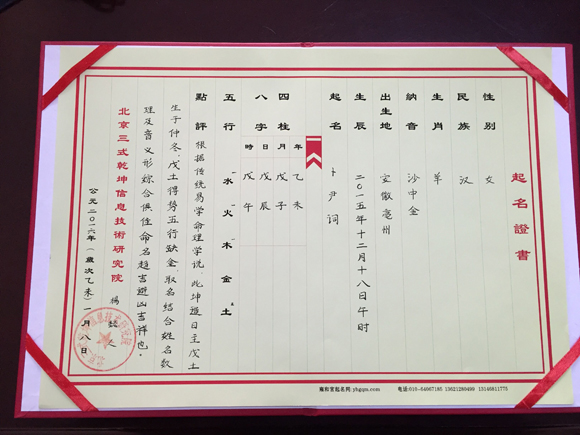 起名證書
性別 女
民族 汉
生肖 羊
納音 沙中金
出生地 安徽亳州
生辰 二〇一五年十二月十八日午时
起名 卜尹词
年 乙未
四柱 月 戊子
八字 日 戊辰
時 戊午
五行 水 火 木 金 土
點評 根据传统易学命理学说，此坤造日主戊土
生于仲冬，戊土得势五行缺金，取名结合姓名数
理及音义形综合俱佳命名趋吉避凶吉祥也。
北京三式乾坤信息技術研究院
公元二〇一六年（歲次乙未）一月八日
雍和宫起名网:yhgqm.com 电话:010-64067185 13621289499 13146811775